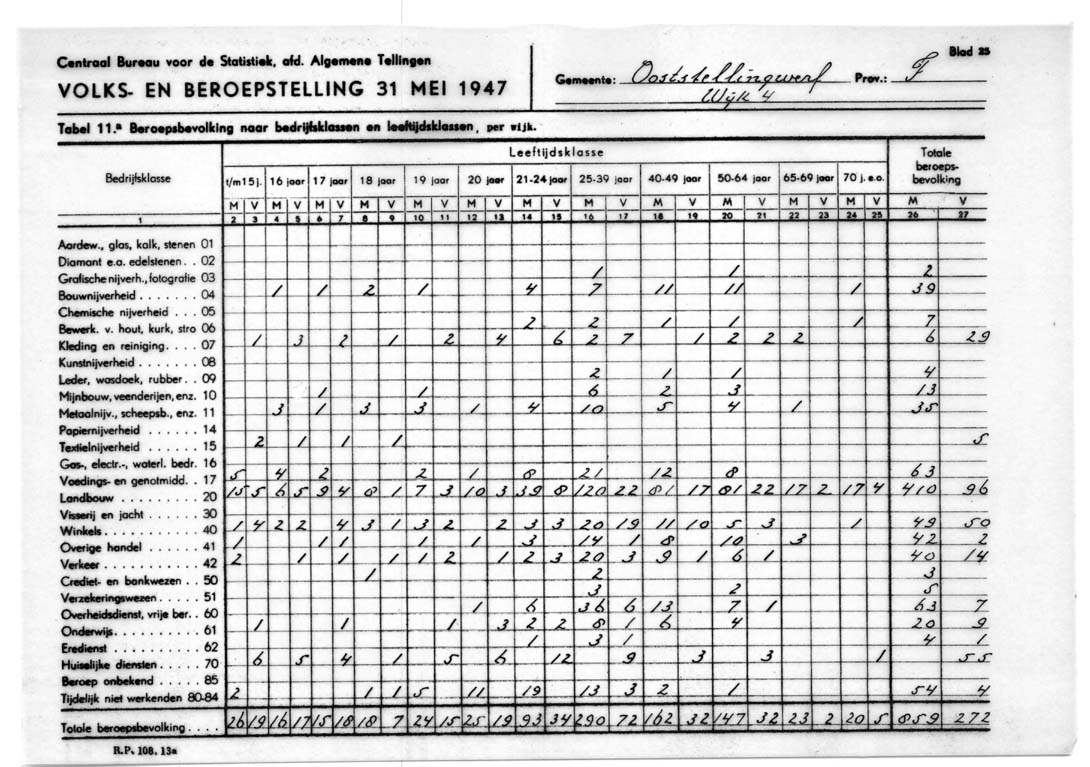 Blad 25
Centraal Bureau voor de Statistiek, afd. Algemene Tellingen
Gemeente: Ooststellingwerf Prov.: F
VOLKS- EN BEROEPSTELLING 31 MEI 1947
Wijk 4
Tabel 11.a Beroepsbevolking naar bedrijfsklassen en leeftijdsklassen, per wijk.
Bedrijfsklasse Leeftijdsklasse Totale beroeps- bevolking
t/m 15 j. 16 jaar 17 jaar 18 jaar 19 jaar 20 jaar 21-24 jaar 25-39 jaar 40-49 jaar 50-64 jaar 65-69 jaar 70 j. e.o.
M V M V M V M V M V M V M V M V M V M V M V M V M V
1 2 3 4 5 6 7 8 9 10 11 12 13 14 15 16 17 18 19 20 21 22 23 24 25 26 27
Aardew., glas, kalk, stenen 01
Diamant e.a. edelstenen . . 02
Grafische nijverh., fotografie 03 1 1 2
Bouwnijverheid . . . . . . . 04 1 1 2 1 4 7 11 11 1 39
Chemische nijverheid . . . 05
Bewerk. v. hout, kurk, stro 06 2 2 1 1 1 7
Kleding en reiniging. . . . 07 1 3 2 1 2 4 6 2 7 1 2 2 2 6 29
Kunstnijverheid . . . . . . 08
Leder, wasdoek, rubber. . 09 2 1 1 4
Mijnbouw, veenderijen, enz. 10 1 1 6 2 3 13
Metaalnijv., scheepsb., enz. 11 3 1 3 3 1 4 10 5 4 1 35
Papiernijverheid . . . . . 14
Textielnijverheid . . . . . 15 2 1 1 1 5
Gas-, electr.-, waterl. bedr. 16
Voedings- en genotmidd. . 17 5 4 2 2 1 8 21 12 8 63
Landbouw . . . . . . . . 20 15 5 6 5 9 4 8 1 7 3 10 3 39 8 120 22 81 17 81 22 17 2 17 4 410 96
Visserij en jacht . . . . . . 30
Winkels . . . . . . . . . . 40 1 4 2 2 4 3 1 3 2 2 3 3 20 19 11 10 5 3 1 49 50
Overige handel . . . . . . 41 1 1 1 1 1 3 14 1 8 10 3 42 2
Verkeer . . . . . . . . . . 42 2 1 1 1 1 2 1 2 3 20 3 9 1 6 1 40 14
Crediet- en bankwezen . . 50 1 2 3
Verzekeringswezen . . . . 51 3 2 5
Overheidsdienst, vrije ber. . 60 1 6 36 6 13 7 1 63 7
Onderwijs. . . . . . . . . 61 1 1 1 3 2 2 8 1 6 4 20 9
Eredienst . . . . . . . . . 62 1 3 1 4 1
Huiselijke diensten . . . . . 70 6 5 4 1 5 6 12 9 3 3 1 55
Beroep onbekend . . . . . 85
Tijdelijk niet werkenden 80-84 2 1 1 5 11 19 13 3 2 1 54 4
Totale beroepsbevolking . . . . 26 19 16 17 15 18 18 7 24 15 25 19 93 34 290 72 162 32 147 32 23 2 20 5 859 272
R.P. 108. 13a